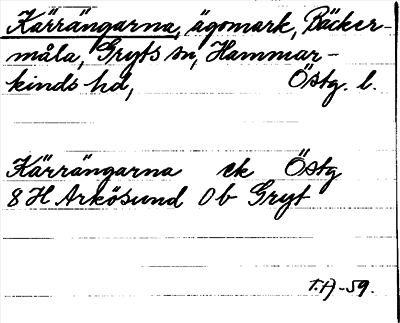 Kärrängarna, ägomark, Bäcker-
måla, Gryts sn, Hammar-
kinds hd, Östg. l.
Kärrängarna ek Östg
8 H Arkösund 0 b Gryt
T.A-59.